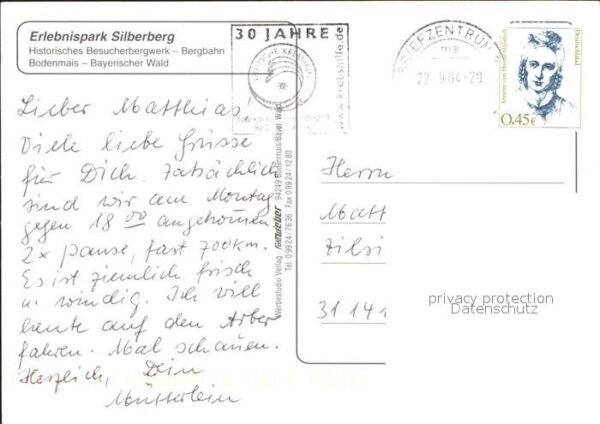 Erlebnispark Silberberg
Historisches Besucherbergwerk – Bergbahn
Bodenmais – Bayerischer Wald
Lieber Matthias!
Viele liebe Grüsse
für Dich. Tatsächlich
sind wir am Montag
gegen 18 00 angekommen
2x Pause, fast 700 km.
Es ist ziemlich frisch
u. windig. Ich will
heute auf den Arber
fahren. Mal schauen.
Herzlich, Dein
Mütterlein
30 JAHRE
DEUTSCHE KREBSHILFE
www.krebshilfe.de
BRIEFZENTRUM
22.9.04-20
Annette von Droste-Hülshoff
Deutschland
0,45€
Werbestudio Verlag 94249 Bodenmais/Bayer. Wald
Tel. 09924/7636 Fax 09924/1280
Herrn
Matt
Zilsi
31141
privacy protection
Datenschutz